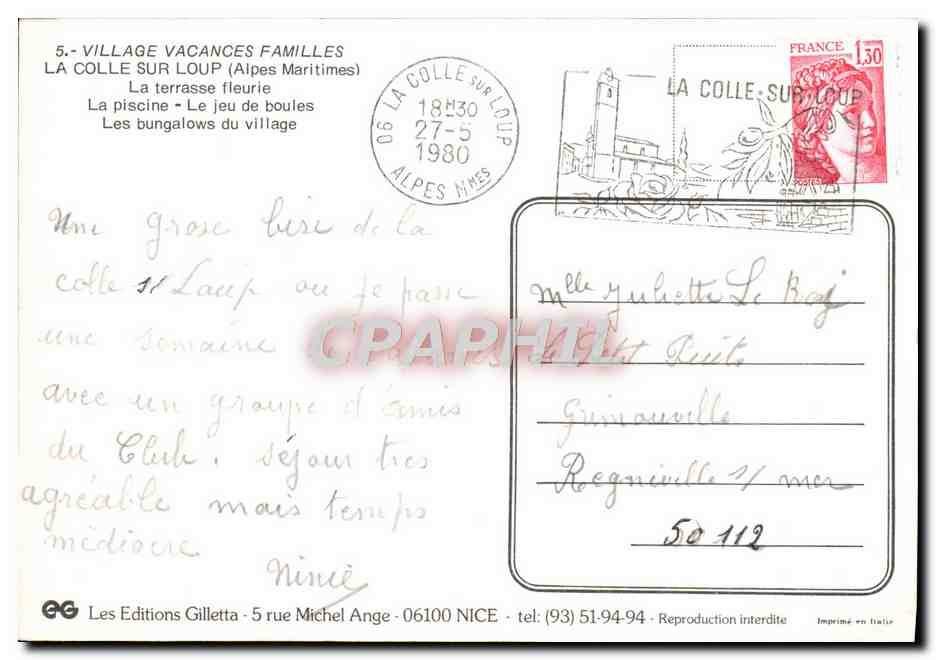 5.- VILLAGE VACANCES FAMILLES
LA COLLE SUR LOUP (Alpes Maritimes)
La terrasse fleurie
La piscine - Le jeu de boules
Les bungalows du village
06 LA COLLE SUR LOUP
18H30
27-5
1980
ALPES Mmes
LA COLLE SUR LOUP
FRANCE
1,30
POSTES
Une grose bise de la
colle s/ Loup ou je passe
une semaine
avec un groupe d'amis
du Club. séjour tres
agréable mais temps
médiocre
Ninie
CPAPHIL
Mlle Juliette Le Roy
Le Petit Puits
Grimouville
Regniville s/ mer
50 112
EG Les Editions Gilletta - 5 rue Michel Ange - 06100 NICE - tel: (93) 51-94-94 - Reproduction interdite
Imprimé en Italie